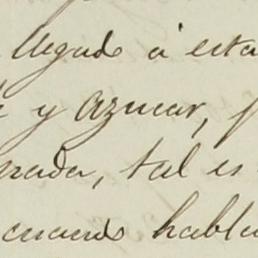 llegado á esta
y azucar,
rada, tal es
habla